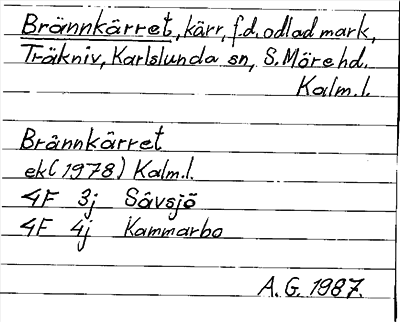 Brännkärret, kärr, f.d. odlad mark,
Träkniv, Karlslunda sn, S. Möre hd.
Kalm.l.
Brännkärret
ek (1978) Kalm.l.
4F 3j Sävsjö
4F 4j Kammarbo
A.G. 1987.